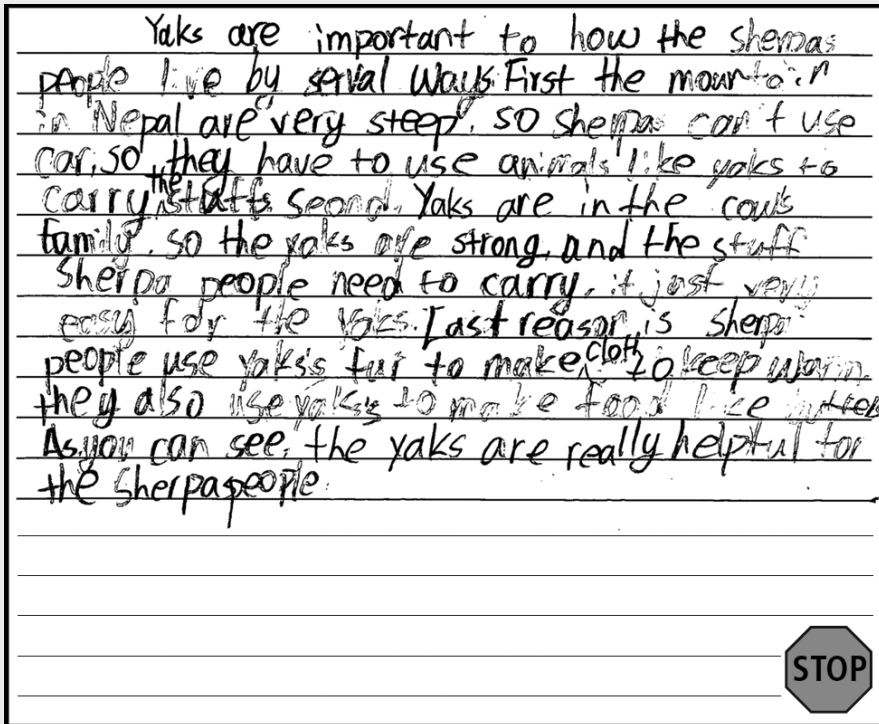 Yaks are important to how the sherpas
people live by serval ways. First the mountain
in Nepal are "very steep". so sherpas can't use
car, so they have to use animals like yaks to
carry the stuffs. Seond, Yaks are in the cow's
family, so the yaks are strong, and the stuff
Sherpa people need to carry, it just very
easy for the yaks. Last reason is Sherpa
people use yaks's fur to make cloth to keep warm.
they also use yaks's to make food like butter.
As you can see, the yaks are really helpful for
the Sherpa people.
STOP